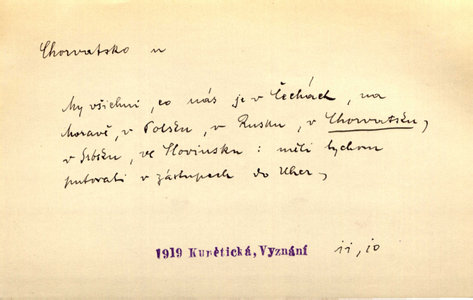 Chorvatsko n
My všichni, co nás je v Čechách, na
Moravě, v Polsku, v Rusku, v Chorvatsku,
v Srbsku, ve Slovinsku: měli bychom
putovati v zástupech do Uher,
1919 Kunětická, Vyznání ii, 10